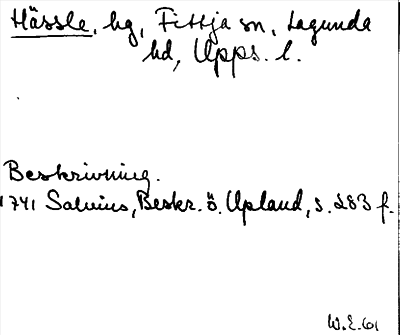 Hässle, hg, Fittja sn, Lagunda
hd, Upps. l.
Beskrivning.
1741 Salvius, Beskr. ö. Upland, s. 283 f.
W.E. 61